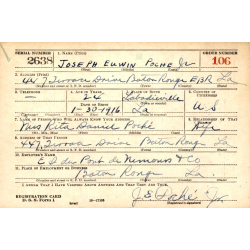 SERIAL NUMBER 1. NAME (Print) ORDER NUMBER
2638 JOSEPH EDWIN POCHE Jr 106
2. ADDRESS (Print)
447 Drive Baton Rouge EBR La
3. TELEPHONE 4. AGE IN YEARS 5. PLACE OF BIRTH 6. COUNTRY OF CITIZENSHIP
24 Labadieville
DATE OF BIRTH
1-30-1916 La U S
7. NAME OF PERSON WHO WILL ALWAYS KNOW YOUR ADDRESS 8. RELATIONSHIP OF THAT PERSON
Mrs Rita Poché Wife
9. ADDRESS OF THAT PERSON
447 Drive Baton Rouge La
10. EMPLOYER'S NAME
E I du Pont de Nemours & Co
11. PLACE OF EMPLOYMENT OR BUSINESS
Baton Rouge La
I AFFIRM THAT I HAVE VERIFIED ABOVE ANSWERS AND THAT THEY ARE TRUE.
REGISTRATION CARD
D. S. S. Form 1 16-17105
J E Poché Jr